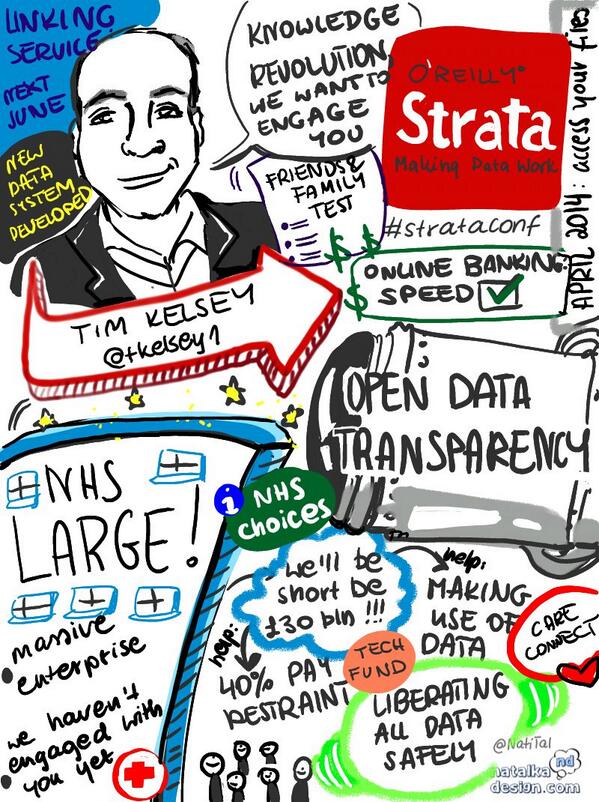 LINKING
SERVICE:
NEXT
JUNE
NEW
DATA
SYSTEM
DEVELOPED
KNOWLEDGE
REVOLUTION,
WE WANT TO
ENGAGE
YOU
O'REILLY®
Strata
Making Data Work
#strataconf
APRIL 2014: access your files
FRIENDS &
FAMILY
TEST
$ $
$
ONLINE BANKING
SPEED
TIM KELSEY
@tkelsey1
OPEN DATA
TRANSPARENCY
NHS
LARGE!
massive
enterprise
we haven't
engaged with
you yet
i
NHS
choices
we'll be
short be
£30 bln !!!
help:
40% PAY
RESTRAINT
help:
MAKING
USE OF
DATA
TECH
FUND
CARE
CONNECT
LIBERATING
ALL DATA
SAFELY
@NatiTal
nd
natalka
design.com